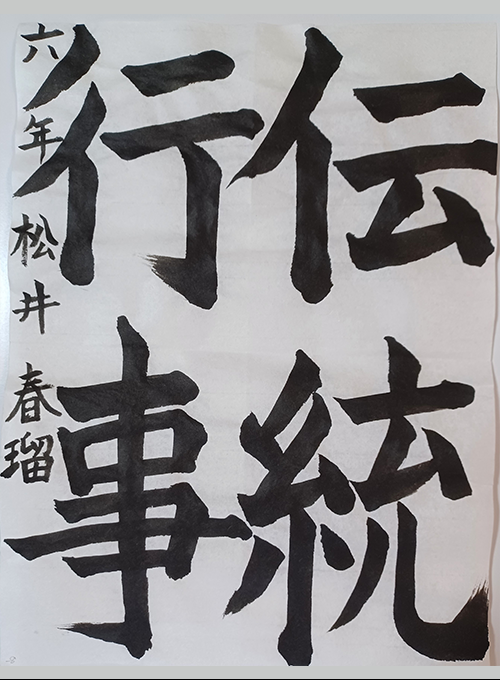 伝統
行事
六年 松井 春瑠